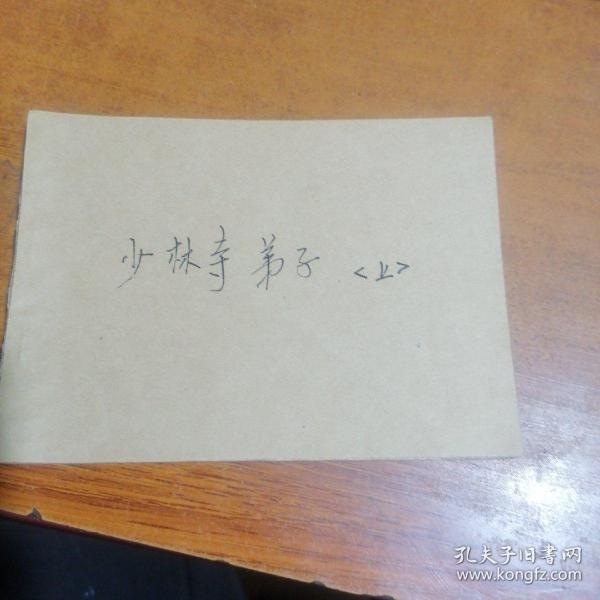 少林寺弟子<上>
孔夫子旧書网
www.kongfz.com